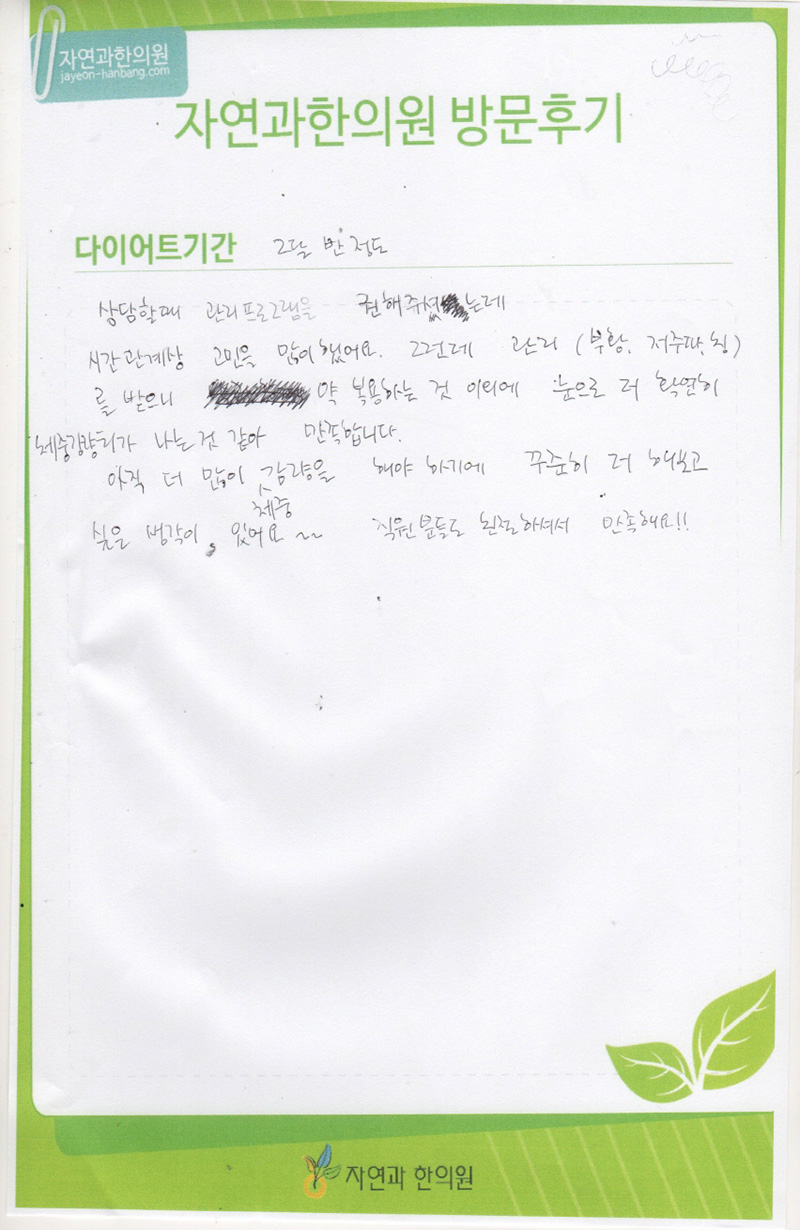 자연과한의원
jayeon-hanbang.com
자연과한의원 방문후기
다이어트기간 2달 반 정도
상담할때 관리프로그램을 권해주셨는데
시간관계상 고민을 많이 했었어요. 그런데 관리 (부황, 저주파, 침)
를 받으니 약 복용하는 것 이외에 눈으로 더 확연히
체중감량티가 나는것 같아 만족합니다.
아직 더 많이 감량을 해야 하기에 꾸준히 더 해보고
체중
싶은 생각이 있어요 ~~ 직원분들도 친절하셔서 만족해요!!
자연과 한의원